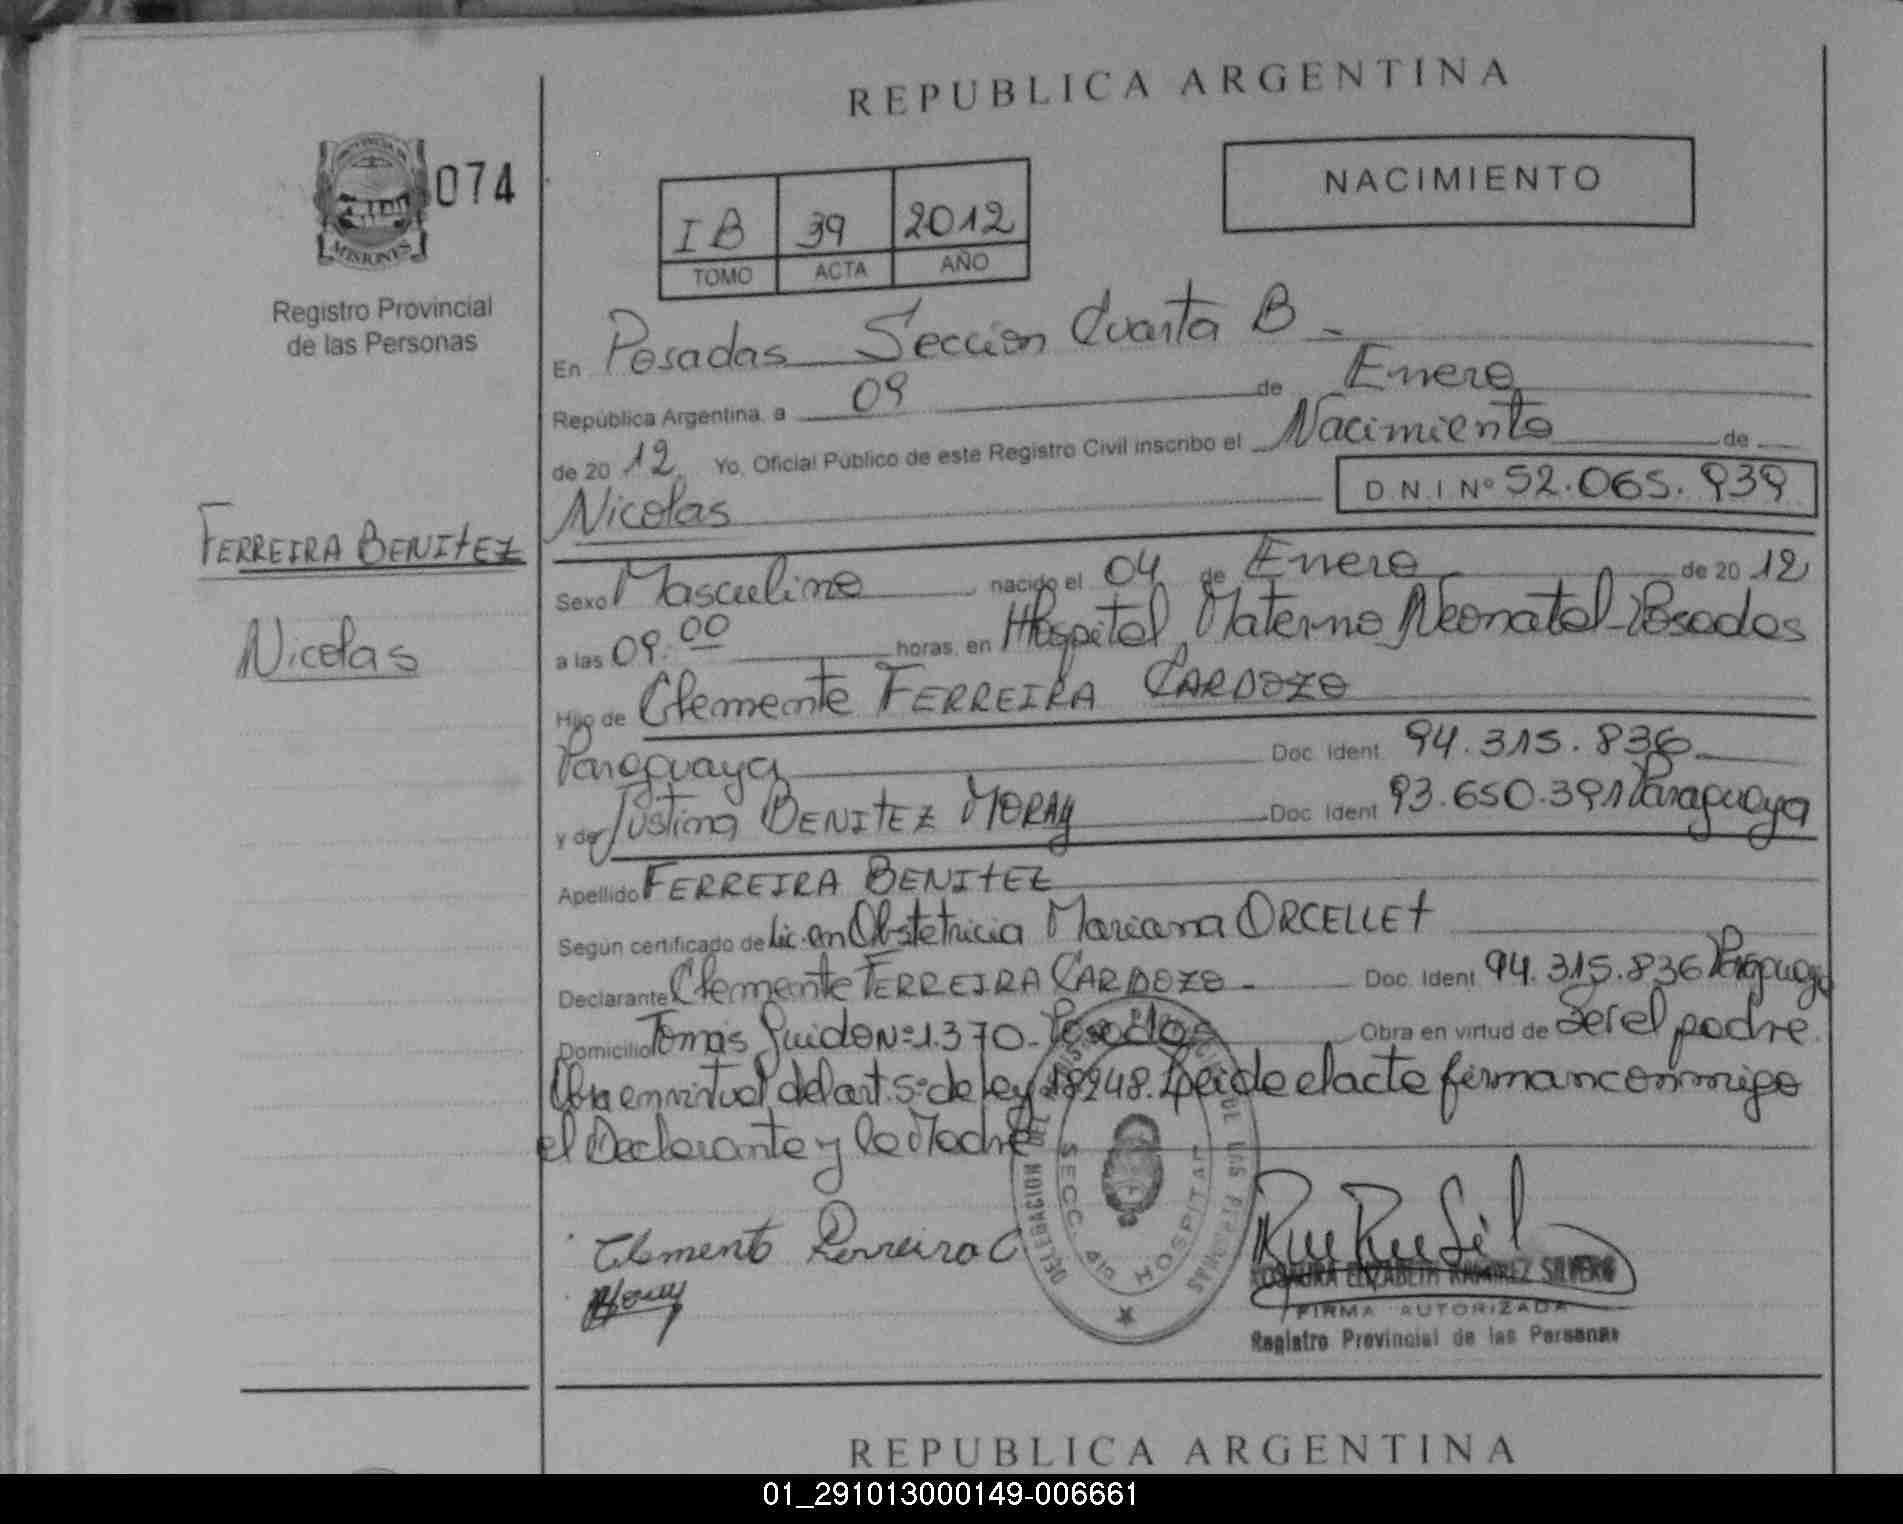 REPUBLICA ARGENTINA
PROVINCIA DE
MISIONES
074
Registro Provincial
de las Personas
NACIMIENTO
I B 39 2012
TOMO ACTA AÑO
En Posadas Seccion Cuarta B -
República Argentina, a 09 de Enero
de 20 12 Yo, Oficial Público de este Registro Civil inscribo el Nacimiento de
Nicolas D.N.I Nº 52.065.939
FERREIRA BENITEZ
Nicolas
Sexo Masculino nacido el 04 de Enero de 20 12
a las 09:00 horas, en Hospital Materno Neonatal-Posadas
Hijo de Clemente FERREIRA CARDOZO
Paraguaya Doc. Ident. 94.315.836
y de Justina BENITEZ MORAY Doc. Ident. 93.650.391 Paraguaya
Apellido FERREIRA BENITEZ
Según certificado de Lic. en Obstetricia Mariana ORCELLET
Declarante Clemente FERREIRA CARDOZO - Doc. Ident. 94.315.836 Paraguaya
Domicilio Tomas Guido Nº 1.370- Posadas Obra en virtud de Ser el padre.
Obra en virtud del art. 5º de Ley 18248. Leida el acta firman conmigo
el Declarante y la Madre
Clemente Ferreira C
DELEGACION DEL REGISTRO PROVINCIAL DE LAS PERSONAS
SECC. 4ta HOSPITAL
ROSAURA ELIZABETH RAMIREZ SILVERO
FIRMA AUTORIZADA
Registro Provincial de las Personas
REPUBLICA ARGENTINA
01_291013000149-006661